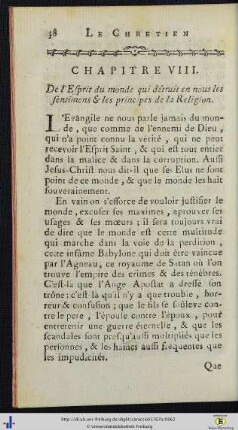 38 LE CHRETIEN
CHAPITRE VIII.
De l'Esprit du monde qui détruit en nous les
sentimens & les principes de la Religion.
L'Evangile ne nous parle jamais du mon-
de, que comme de l'ennemi de Dieu,
qui n'a point connu la vérité, qui ne peut
recevoir l'Esprit Saint, & qui est tout entier
dans la malice & dans la corruption. Aussi
Jesus-Christ nous dit-il que ses Elus ne sont
point de ce monde, & que le monde les haït
souverainement.
En vain on s'efforce de vouloir justifier le
monde, excuser ses maximes, aprouver ses
usages & ses mœurs; il sera toujours vrai
de dire que le monde est cette multitude
qui marche dans la voie de la perdition,
cette infâme Babylone qui doit être vaincue
par l'Agneau, ce royaume de Satan où l'on
trouve l'empire des crimes & des ténèbres.
C'est-là que l'Ange Apostat a dressé son
trône: c'est-là qu'il n'y a que trouble, hor-
reur & confusion; que le fils se souleve con-
tre le pere, l'épouse contre l'époux, pour
entretenir une guerre éternelle, & que les
scandales sont presqu'aussi multipliés que les
personnes, & les haines aussi fréquentes que
les impudicités.
Que
© Universitätsbibliothek Freiburg